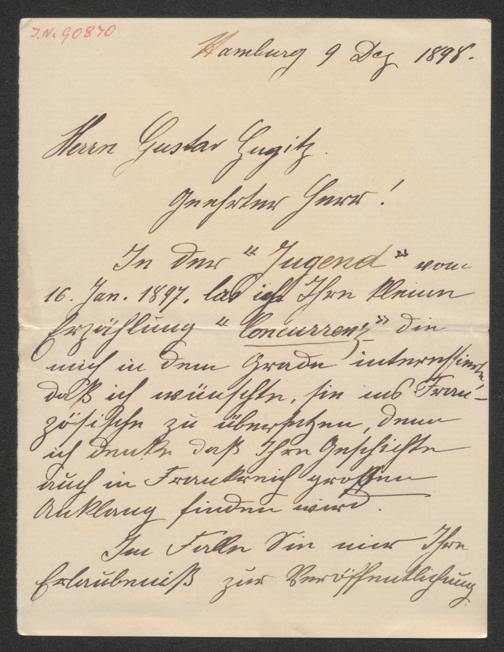 J.N. 90870
Hamburg 9 Dez 1898.
Herrn Gustav Gugitz.
Geehrter Herr!
In der "Jugend" vom
16. Jan. 1897. las ich Ihre kleine
Erzählung "Concurrenz" die
mich in dem Grade interessierte,
daß ich wünschte, sie ins Fran-
zösische zu übersetzen, denn
ich denke daß Ihre Geschichte
auch in Frankreich großen
Anklang finden wird.
Im Falle Sie mir Ihre
Erlaubniß zur Veröffentlichung